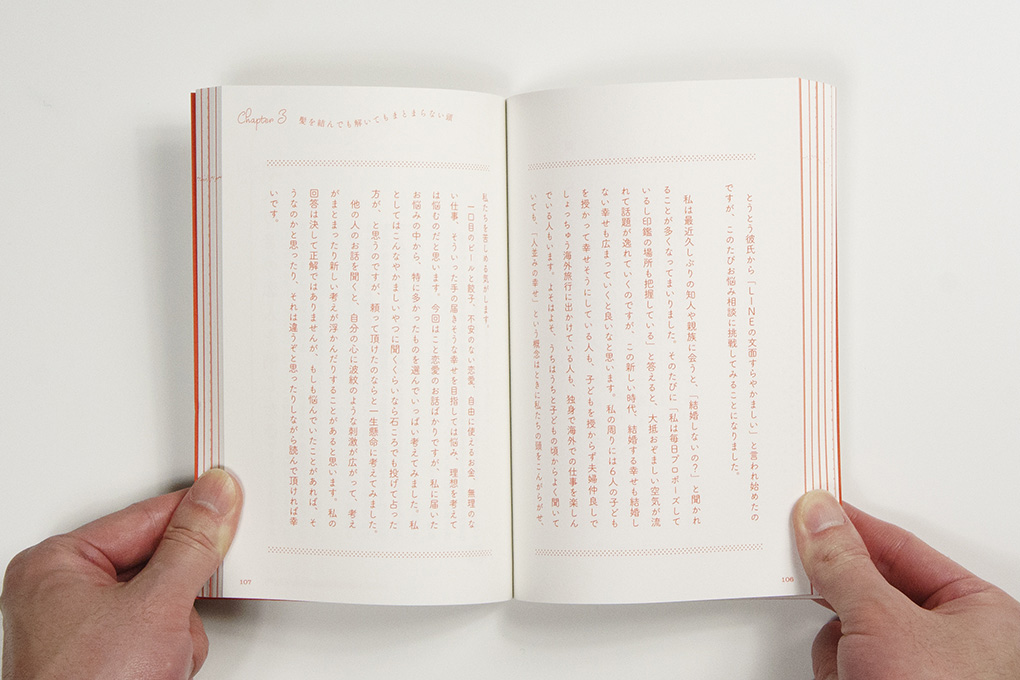 とうとう彼氏から「LINEの文面すらやかましい」と言われ始めたの
ですが、このたびお悩み相談に挑戦してみることになりました。
私は最近久しぶりの知人や親族に会うと、「結婚しないの？」と聞かれ
ることが多くなってまいりました。そのたびに「私は毎日プロポーズして
いるし印鑑の場所も把握している」と答えると、大抵おぞましい空気が流
れて話題が逸れていくのですが、この新しい時代、結婚する幸せも結婚し
ない幸せも広まっていくと良いなと思います。私の周りには6人の子ども
を授かって幸せそうにしている人も、子どもを授からず夫婦仲良しで
しょっちゅう海外旅行に出かけている人も、独身で海外での仕事を楽しん
でいる人もいます。よそはよそ、うちはうちと子どもの頃からよく聞いて
いても、「人並みの幸せ」という概念はときに私たちの頭をこんがらがせ、
106
Chapter 3 髪を結んでも解いてもまとまらない頭
私たちを苦しめる気がします。
一口目のビールと餃子、不安のない恋愛、自由に使えるお金、無理のな
い仕事、そういった手の届きそうな幸せを目指しては悩み、理想を考えて
は悩むのだと思います。今回はこと恋愛のお話ばかりですが、私に届いた
お悩みの中から、特に多かったものを選んでいっぱい考えてみました。私
としてはこんなやかましいやつに聞くくらいなら石ころでも投げて占った
方が、と思うのですが、頼って頂けたのならと一生懸命に考えてみました。
他の人のお話を聞くと、自分の心に波紋のような刺激が広がって、考え
がまとまったり新しい考えが浮かんだりすることがあると思います。私の
回答は決して正解ではありませんが、もしも悩んでいたことがあれば、そ
うなのかと思ったり、それは違うぞと思ったりしながら読んで頂ければ幸
いです。
107